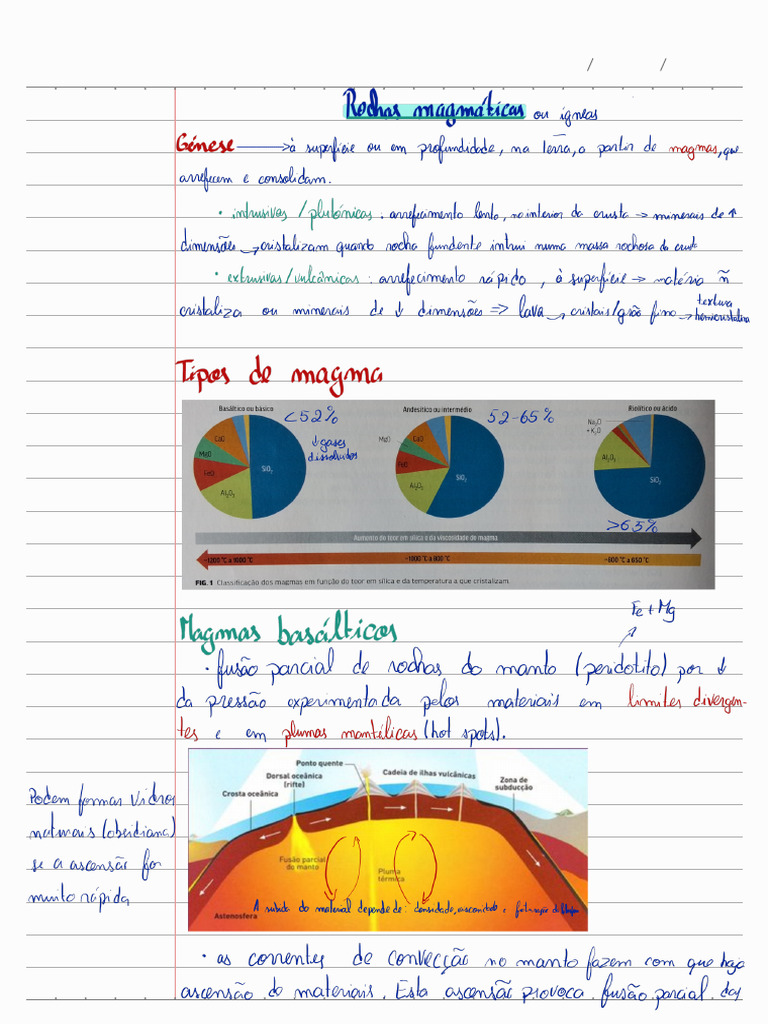 / /
Rochas magmáticas ou ígneas
Génese → à superfície ou em profundidade, na Terra, a partir de magmas, que
arrefecem e consolidam.
• intrusivas / plutónicas: arrefecimento lento, no interior da crusta → minerais de ↑
dimensões → cristalizam quando rocha fundente intrui numa massa rochosa da crusta
• extrusivas/vulcânicas: arrefecimento rápido, à superfície → matéria ñ
cristaliza ou minerais de ↓ dimensões => lava → cristais/grão fino → textura
hemicristalina
Tipos de magma
Basáltico ou básico
<52%
Andesítico ou intermédio
52-65%
Riolítico ou ácido
CaO
MgO
FeO
Al₂O₃
SiO₂
↓ gases
dissolvidos
CaO
MgO
FeO
Al₂O₃
SiO₂
Na₂O
+ K₂O
Al₂O₃
SiO₂
>65%
Aumento do teor em sílica e da viscosidade do magma
~1200 °C a 1000 °C
~1000 a 800 °C
~800 °C a 650 °C
FIG. 1 Classificação dos magmas em função do teor em sílica e da temperatura a que cristalizam.
Fe + Mg
Magmas basálticos
• fusão parcial de rochas do manto (peridotito) por ↓
da pressão experimentada pelos materiais em limites divergen-
tes e em plumas mantélicas (hot spots).
Ponto quente
Dorsal oceânica
(rifte)
Cadeia de ilhas vulcânicas
Zona de
subducção
Crosta oceânica
Fusão parcial
do manto
Pluma
térmica
Astenosfera
A subida do material depende de: densidade, viscosidade e
Podem formar vidros
naturais (obsidiana)
se a ascensão for
muito rápida
• as correntes de convecção no manto fazem com que haja
ascensão de materiais. Esta ascensão provoca fusão parcial das